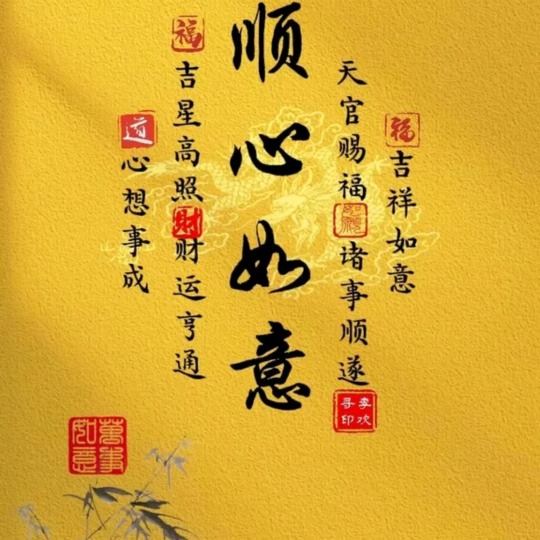 福
吉祥如意
天官赐福
如愿
诸事顺遂
李欢
寻印
顺心如意
福
吉星高照
财
财运亨通
道
心想事成
萬事
如意